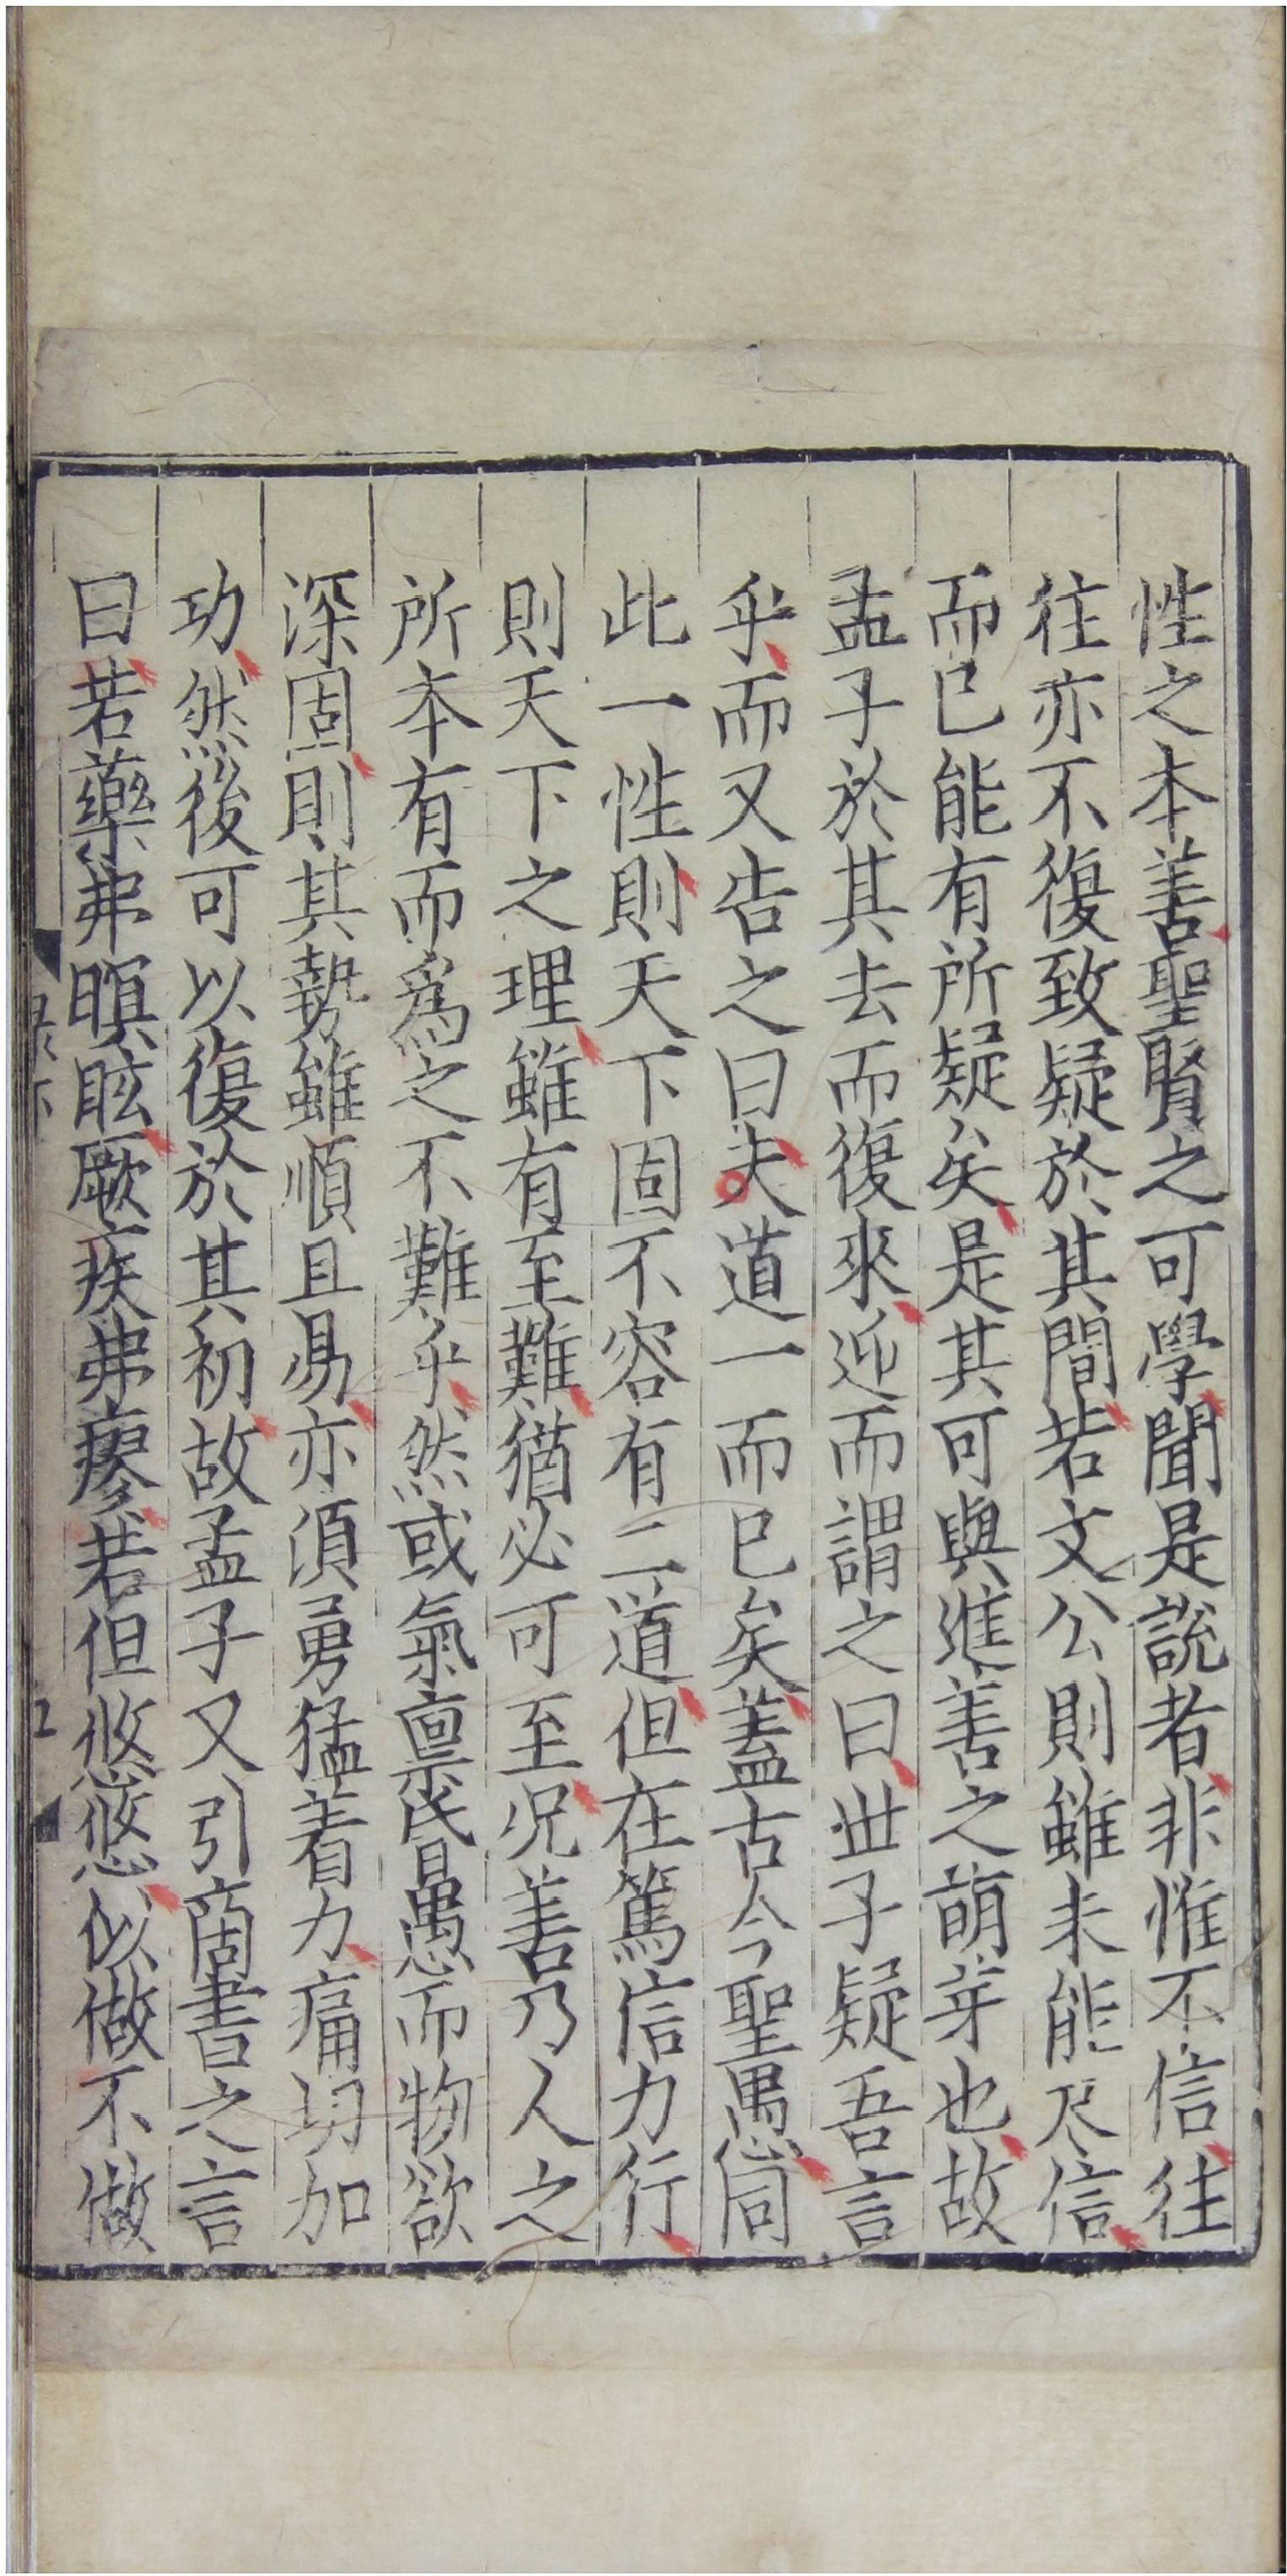 性之本善聖賢之可學聞是説者非惟不信往
往亦不復致疑於其間若文公則雖未能尽信
而已能有所疑矣是其可與進善之萌芽也故
孟子於其去而復來迎而謂之曰世子疑吾言
乎而又告之曰夫道一而已矣蓋古今聖愚同
此一性則天下固不容有二道但在篤信力行
則天下之理雖有至難猶必可至况善乃人之
所本有而爲之不難乎然或氣禀昬愚而物欲
深固則其勢雖順且易亦須勇猛着力痛切加
功然後可以復於其初故孟子又引商書之言
曰若藥弗瞑眩厥疾弗瘳若但悠悠似做不做